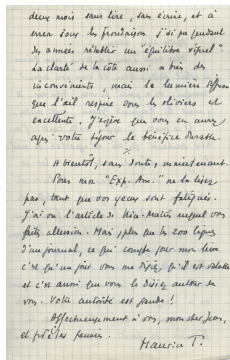 deux mois sans lire, sans écrire, et à
errer sous les frondaisons j'ai pu pendant
des années rétablir un équilibre visuel".
La clarté de la côte aussi a bien des
inconvénients, mais la lumière diffuse
que l'œil respire sous les oliviers est
excellente. J'espère que vous en aurez
après votre séjour le bénéfice durable.
A bientôt, sans doute, maintenant.
Pour mon "Exp. Am." ne la lisez
pas, tant que vos yeux sont fatigués.
J'ai vu l'article de auquel vous
faites allusion. Mais plus que les 200 lignes
d'un journal, ce qui compte pour mon livre
c'est qu'un jour vous me disiez qu'il est valable
et c'est aussi que vous le disiez autour de
vous. Votre autorité est grande !
Affectueusement à vous, mon cher Jean,
et fidèles pensées.
Maurice T.